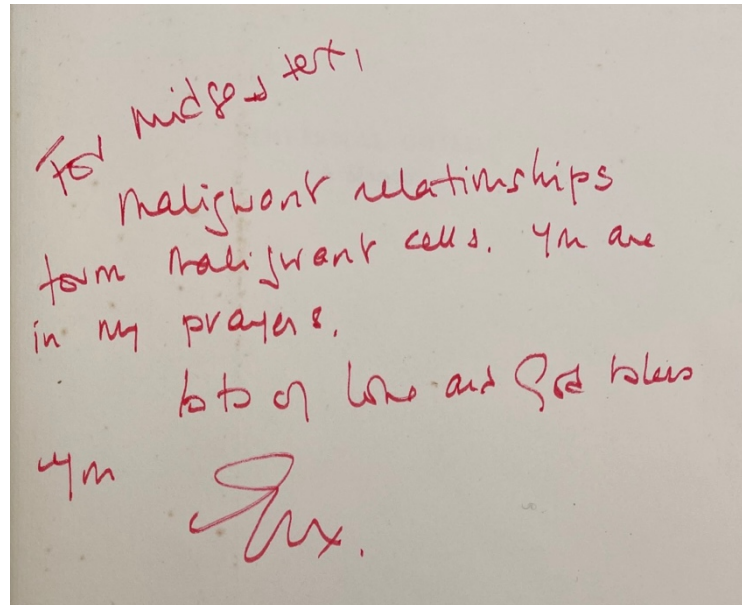 For Midge & text,
Malignant relationships
form malignant cells. You are
in my prayers.
lots of love and God bless
you